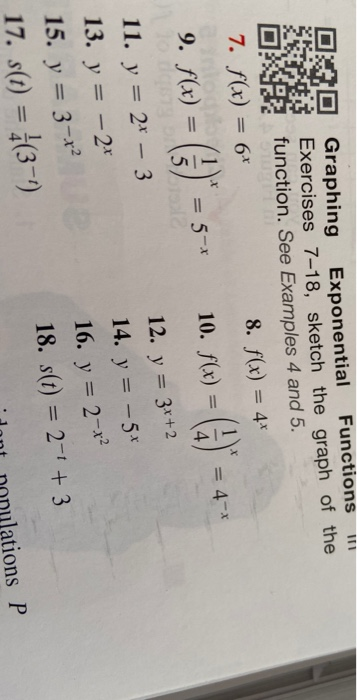 Graphing Exponential Functions In
Exercises 7–18, sketch the graph of the
function. See Examples 4 and 5.
7. f(x) = 6ˣ 8. f(x) = 4ˣ
9. f(x) = (1/5)ˣ = 5⁻ˣ 10. f(x) = (1/4)ˣ = 4⁻ˣ
11. y = 2ˣ − 3 12. y = 3ˣ⁺²
13. y = −2ˣ 14. y = −5ˣ
15. y = 3^(−x²) 16. y = 2^(−x²)
17. s(t) = ¼(3⁻ᵗ) 18. s(t) = 2⁻ᵗ + 3
populations P